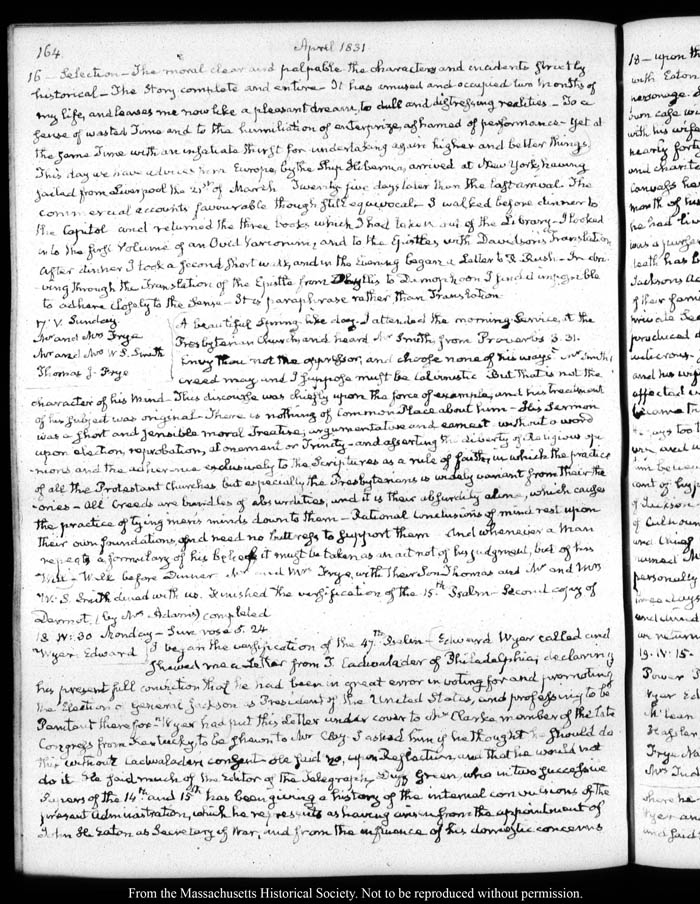 164
April 1831
16 - Selection - The moral clear and palpable the characters and incidents strictly
historical - The Story complete and entire - It has amused and occupied two Months of
my life, and leaves me now like a pleasant dream, to dull and distressing realities - To a
sense of wasted Time and to the humiliation of enterprize, ashamed of performance - Yet at
the same Time with an insatiate thirst for undertaking again higher and better things.
This day we have advices from Europe, by the Ship Hibernia, arrived at New York, having
sailed from Liverpool the 21st of March Twenty five days later than the last arrival. The
commercial accounts favourable though still equivocal - I walked before dinner to
the Capitol and returned the three books which I had taken out of the Library - I looked
into the first Volume of an Ovid Variorum, and to the Epistles with Davidson's Translation
After dinner I took a second short walk, and in the Evening began a Letter to R Rush -
ving through the Translation of the Epistle from Phyllis to Demophoon I find it impossible
to adhere closely to the Sense - It is paraphrase rather than Translation.
17. V. Sunday
Mr and Mrs Frye
Mr and Mrs W. S. Smith
Thomas J. Frye
A beautiful Spring like day. I attended the morning Service, at the
Presbyterian Church, and heard Mr Smith, from Proverbs 3. 31.
Envy thou not the oppressor, and choose none of his ways Mr Smith's
creed may, and I suppose must be Calvinistic But that is not the
character of his Mind - This discourse was chiefly upon the force of example, and his treatment
of his subject was original - There is nothing of Common Place about him - His Sermon
was a short and sensible moral Treatise, argumentative and earnest without a word
upon election, reprobation, atonement or Trinity - and asserting the liberty of Religious opi-
nions and the adherence exclusively to the Scriptures as a rule of faith, in which the practice
of all the Protestant Churches but especially the Presbyterians is widely variant from their the-
-ories - All Creeds are bundles of absurdities, and it is their absurdity alone, which causes
the practice of tying men's minds down to them - Rational Conclusions of mind rest upon
their own foundations, and need no buttress to support them - And whenever a Man
repeats a formulary of his belief it must be taken as an act not of his judgment, but of his
Will - Walk before Dinner. Mr and Mrs Frye, with their Son Thomas and Mr and Mrs
W. S. Smith dined with us. I finished the versification of the 15th Psalm - Second copy of
Dermot, (by Mrs Adams) completed
18 IV:30 Monday - Sun rose 5. 24
Wyer Edward
I began the versification of the 47th Psalm - Edward Wyer called and
shewed me a Letter from T. Cadwalader of Philadelphia, declaring
his present full conviction that he had been in great error in voting for and promoting
the Election of General Jackson as President of the United States, and professing to be
Penitent therefor - Wyer had put this Letter under cover to Mr Clarke member of the late
Congress from Kentucky, to be shewn to Mr Clay. I asked him if he thought he should do
this without Cadwalader's consent - He said no, upon Reflection, and that he would not
do it. He said much of the Editor of the Telegraph, Duff Green, who in two successive
Papers of the 14th and 15th has been giving a history of the internal convulsions of the
present Administration, which he represents as having arisen from the appointment of
John H. Eaton as Secretary of War, and from the influence of his domestic concerns
18 - upon th
with Eaton
personage.
own case wi
with his wife
nearly forty
and charite
canvass ha
month of his
he had liv
was a purser
death has b
Jacksons ad
of their fami
private
produced
ludicrous.
and his wif
affected
became tr
personally
19. IV. 15.
Power
Wyer Ed
McLean
Hassler
Frye Na
Mrs
where he
Wyer an
and said
From the Massachusetts Historical Society. Not to be reproduced without permission.